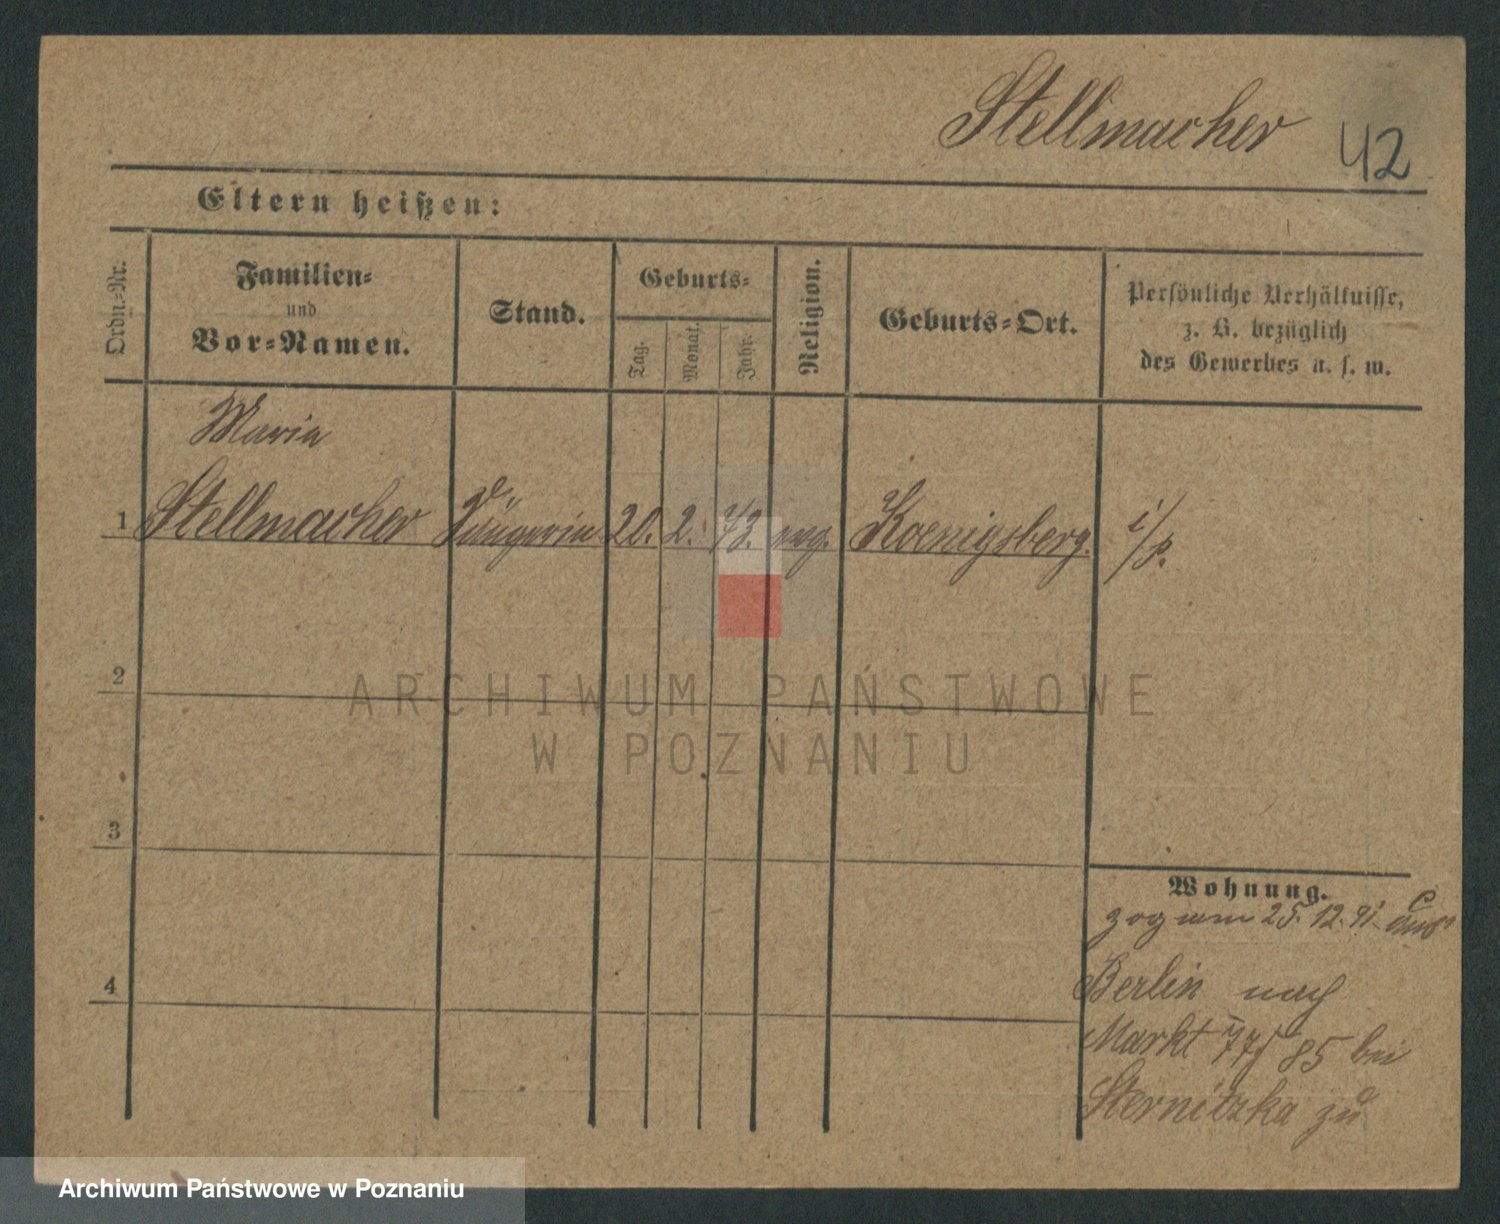 Stellmacher
42
Eltern heißen:
Ordn.-Nr.
Familien-
und
Vor-Namen.
Stand.
Geburts-
Tag.
Monat.
Jahr.
Religion.
Geburts-Ort.
Persönliche Verhältnisse,
z. B. bezüglich
des Gewerbes u. s. w.
Maria
1 Stellmacher Sängerin 20. 2. 73. evg. Koenigsberg. i/p.
2
3
4
Wohnung.
zog am 25. 12. 91 aus
Berlin nach
Markt 77/85 bei
Sternitzka zu
ARCHIWUM PAŃSTWOWE
W POZNANIU
Archiwum Państwowe w Poznaniu